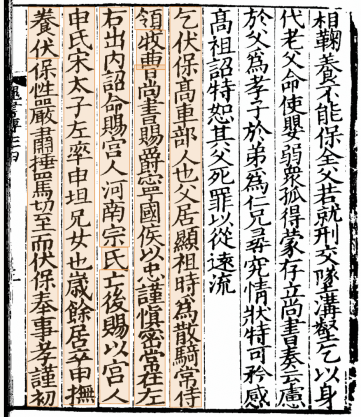 相鞠養不能保全父若就刑交墜溝壑乞以身
代老父命使嬰弱衆孤得蒙存立尚書奏云慮
於父爲孝子於弟爲仁兄尋究情狀特可矜感
高祖詔特恕其父死罪以從遠流
乞伏保高車部人也父居顯祖時爲散騎常侍
領牧曹尚書賜爵寧國侯以忠謹慎密常在左
右出内詔命賜宮人河南宗氏亡後賜以宮人
申氏宋太子左率申坦兄女也歲餘居卒申撫
養伏保性嚴肅捶罵切至而伏保奉事孝謹初